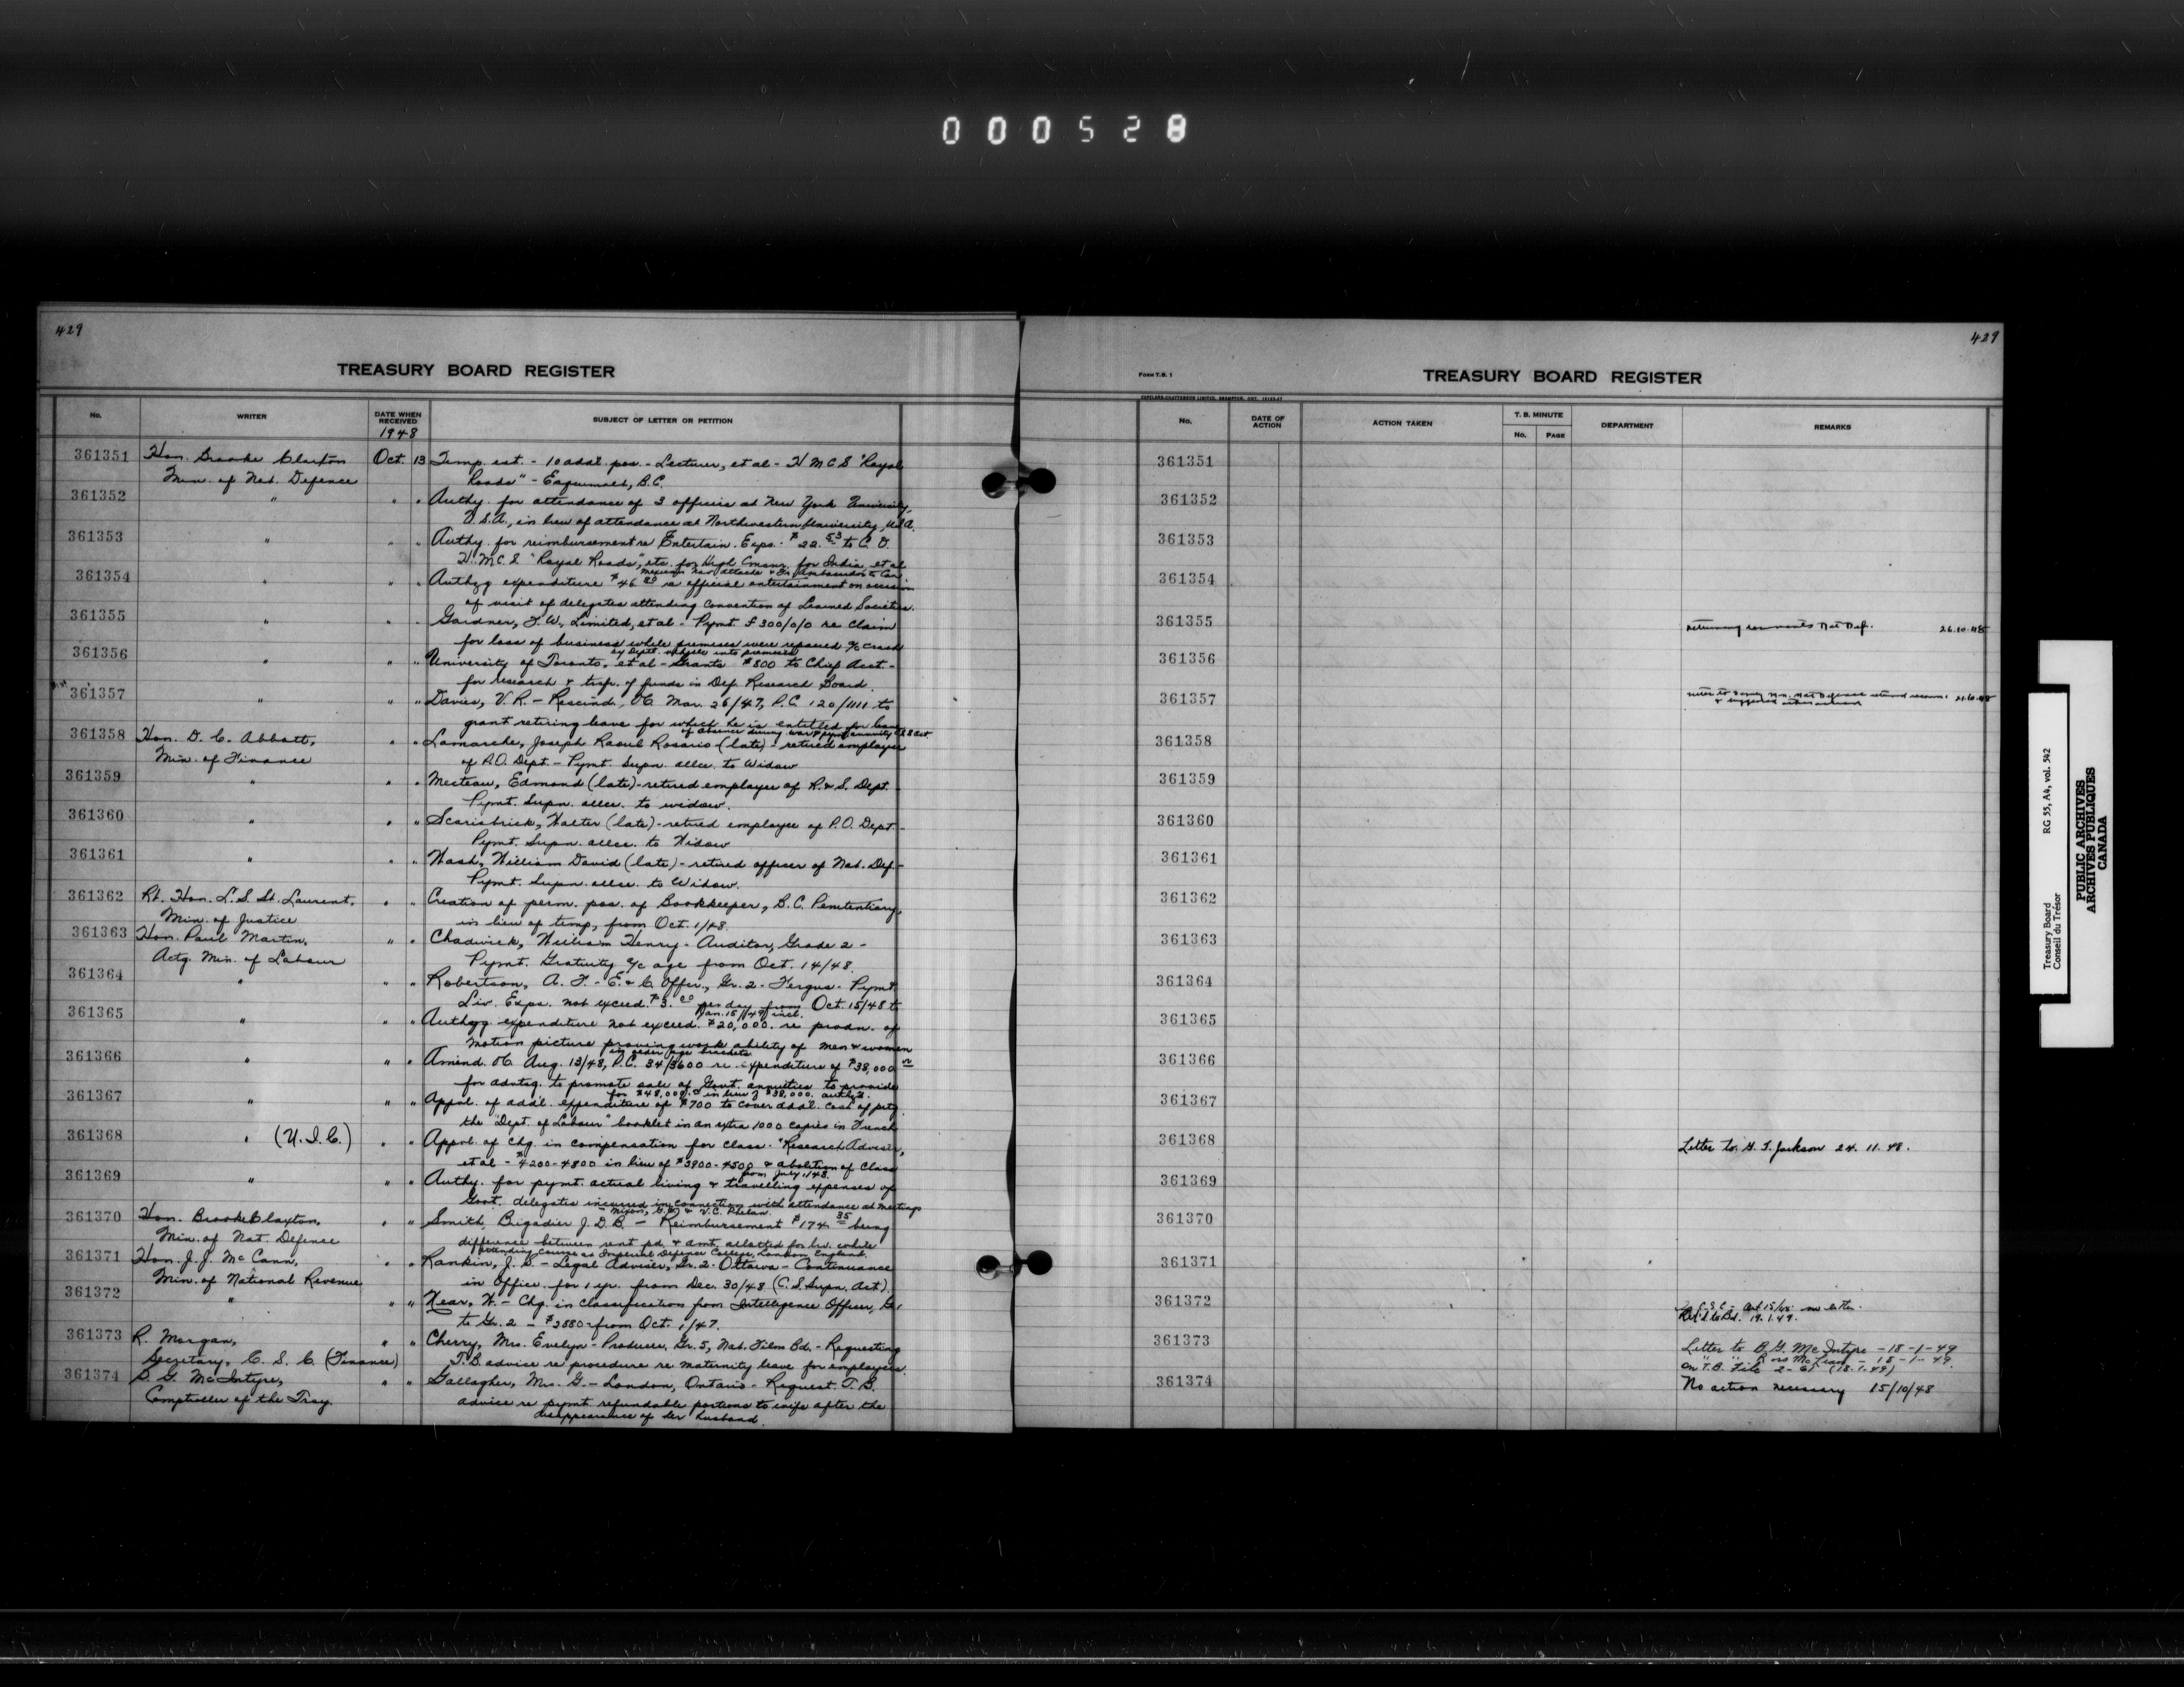 000528
429
TREASURY BOARD REGISTER
No.
WRITER
DATE WHEN RECEIVED
1948
SUBJECT OF LETTER OR PETITION
361351 Hon. Brooke Claxton Oct. 13 Temp. est. - 10 addl. pos. - Lecturer, et al - H M C S "Royal
Min. of Nat. Defence Roads" - Esquimalt, B.C.
361352 " " " Authy. for attendance of 3 officers at New York University,
U.S.A., in lieu of attendance at Northwestern University, U.S.A.
361353 " " " Authy. for reimbursement re Entertain. Exps. $22.53 to C.O.
H.M.C.S "Royal Roads", etc. for High Commr. for India, et al
Mexican Nav. Attache & Ambassador to Can.
361354 " " " Authzg expenditure $46.80 re official entertainment on occasion
of visit of delegates attending Convention of Learned Societies.
361355 " " " Gardner, F.W., Limited, et al - Pymt £300/0/0 re claim
for loss of business while premises were repaired a/c crash
by Deptl. vehicle into premises
361356 " " " University of Toronto, et al - Grants $800 to Chief Acct. -
for research & trsfr. of funds in Def. Research Board.
361357 " " " Davies, V.R. - Rescind. OC Mar. 26/47, P.C. 120/1111 to
grant retiring leave for which he is entitled for leave
of absence during war & pymt annuity
361358 Hon. D. C. Abbott, " " Lamarche, Joseph Raoul Rosario (late) - retired employee
Min. of Finance of P.O. Dept. - Pymt. Supn. allce. to Widow
361359 " " " Mecteau, Edmond (late) - retired employee of R. & S. Dept.
Pymt. Supn. allce. to widow.
361360 " " " Scarisbrick, Walter (late) - retired employee of P.O. Dept. -
Pymt. Supn. allce. to Widow
361361 " " " Nash, William David (late) - retired officer of Nat. Def. -
Pymt. Supn. allce. to Widow.
361362 Rt. Hon. L. S. St. Laurent, " " Creation of perm. pos. of Bookkeeper, B.C. Penitentiary,
Min. of Justice in lieu of temp, from Oct. 1/48.
361363 Hon. Paul Martin, " " Chadwick, William Henry - Auditor, Grade 2 -
Actg. Min. of Labour Pymt. Gratuity a/c age from Oct. 14/48.
361364 " " " Robertson, A. F. - E. & C. Offcr., Gr. 2 - Fergus - Pymt
Liv. Exps. not exceed. $3.00 per day from Oct. 15/48 to
Jan. 15/49 incl.
361365 " " " Authzg expenditure not exceed. $20,000. re prodn. of
motion picture proving work ability of men & women
in older age brackets
361366 " " " Amend. OC Aug. 13/48, P.C. 34/3600 re expenditure of $38,000
for advtsg. to promote sale of Govt. annuities to provide
for $48,000. in lieu of $38,000. authzd.
361367 " " " Appvl. of addl. expenditure of $700 to cover addl. cost of prtg
the "Dept. of Labour" booklet in an extra 1000 copies in French
361368 " (U.I.C.) " " Appvl. of chg. in compensation for class. "Research Adviser,
et al - $4200-4800 in lieu of $3900-4500 & abolition of Class
from July 1/48.
361369 " " " Authy. for pymt. actual living & travelling expenses of
Govt. delegates incurred in connection with attendance at meetings
361370 Hon. Brooke Claxton, " " Smith, Brigadier J. D. B. - Reimbursement $174.35 being
Min. of Nat. Defence difference between rent pd. & amt. allotted for liv. while
attending course at Imperial Defence College, London England.
361371 Hon. J. J. McCann, " " Rankin, J. D. - Legal Adviser, Gr. 2 - Ottawa - Continuance
Min. of National Revenue in office for 1 yr. from Dec. 30/48 (C.S. Supn. Act).
361372 " " " Near, W. - Chg. in classification from Intelligence Officer, Gr. 1
to Gr. 2 - $2880 - from Oct. 1/47.
361373 R. Morgan, " " Cherry, Mrs. Evelyn - Producer, Gr. 5, Nat. Film Bd. - Requesting
Secretary, C. S. C. (Finance) T.B. advice re procedure re maternity leave for employees.
361374 B. G. McIntyre, " " Gallagher, Mrs. G. - London, Ontario - Request T. B.
Comptroller of the Trsy. advice re pymt refundable portions to wife after the
disappearance of her husband.
429
FORM T.B. 1
TREASURY BOARD REGISTER
No.
DATE OF ACTION
ACTION TAKEN
T. B. MINUTE
No.
PAGE
DEPARTMENT
REMARKS
361351
361352
361353
361354
361355 Nat Def. 26.10.48
361356
361357
361358
361359
361360
361361
361362
361363
361364
361365
361366
361367
361368 Letter to Jackson 24. 11. 48.
361369
361370
361371
361372 Oct 15/48
to Bd. 19.1.49.
361373 Letter to B. G. McIntyre - 18-1-49
" " Ross McLean - 18-1-49.
on T.B. File (18.1.49)
361374 No action necessary 15/10/48
Treasury Board
Conseil du Trésor
RG 55, A4, vol. 542
PUBLIC ARCHIVES
ARCHIVES PUBLIQUES
CANADA